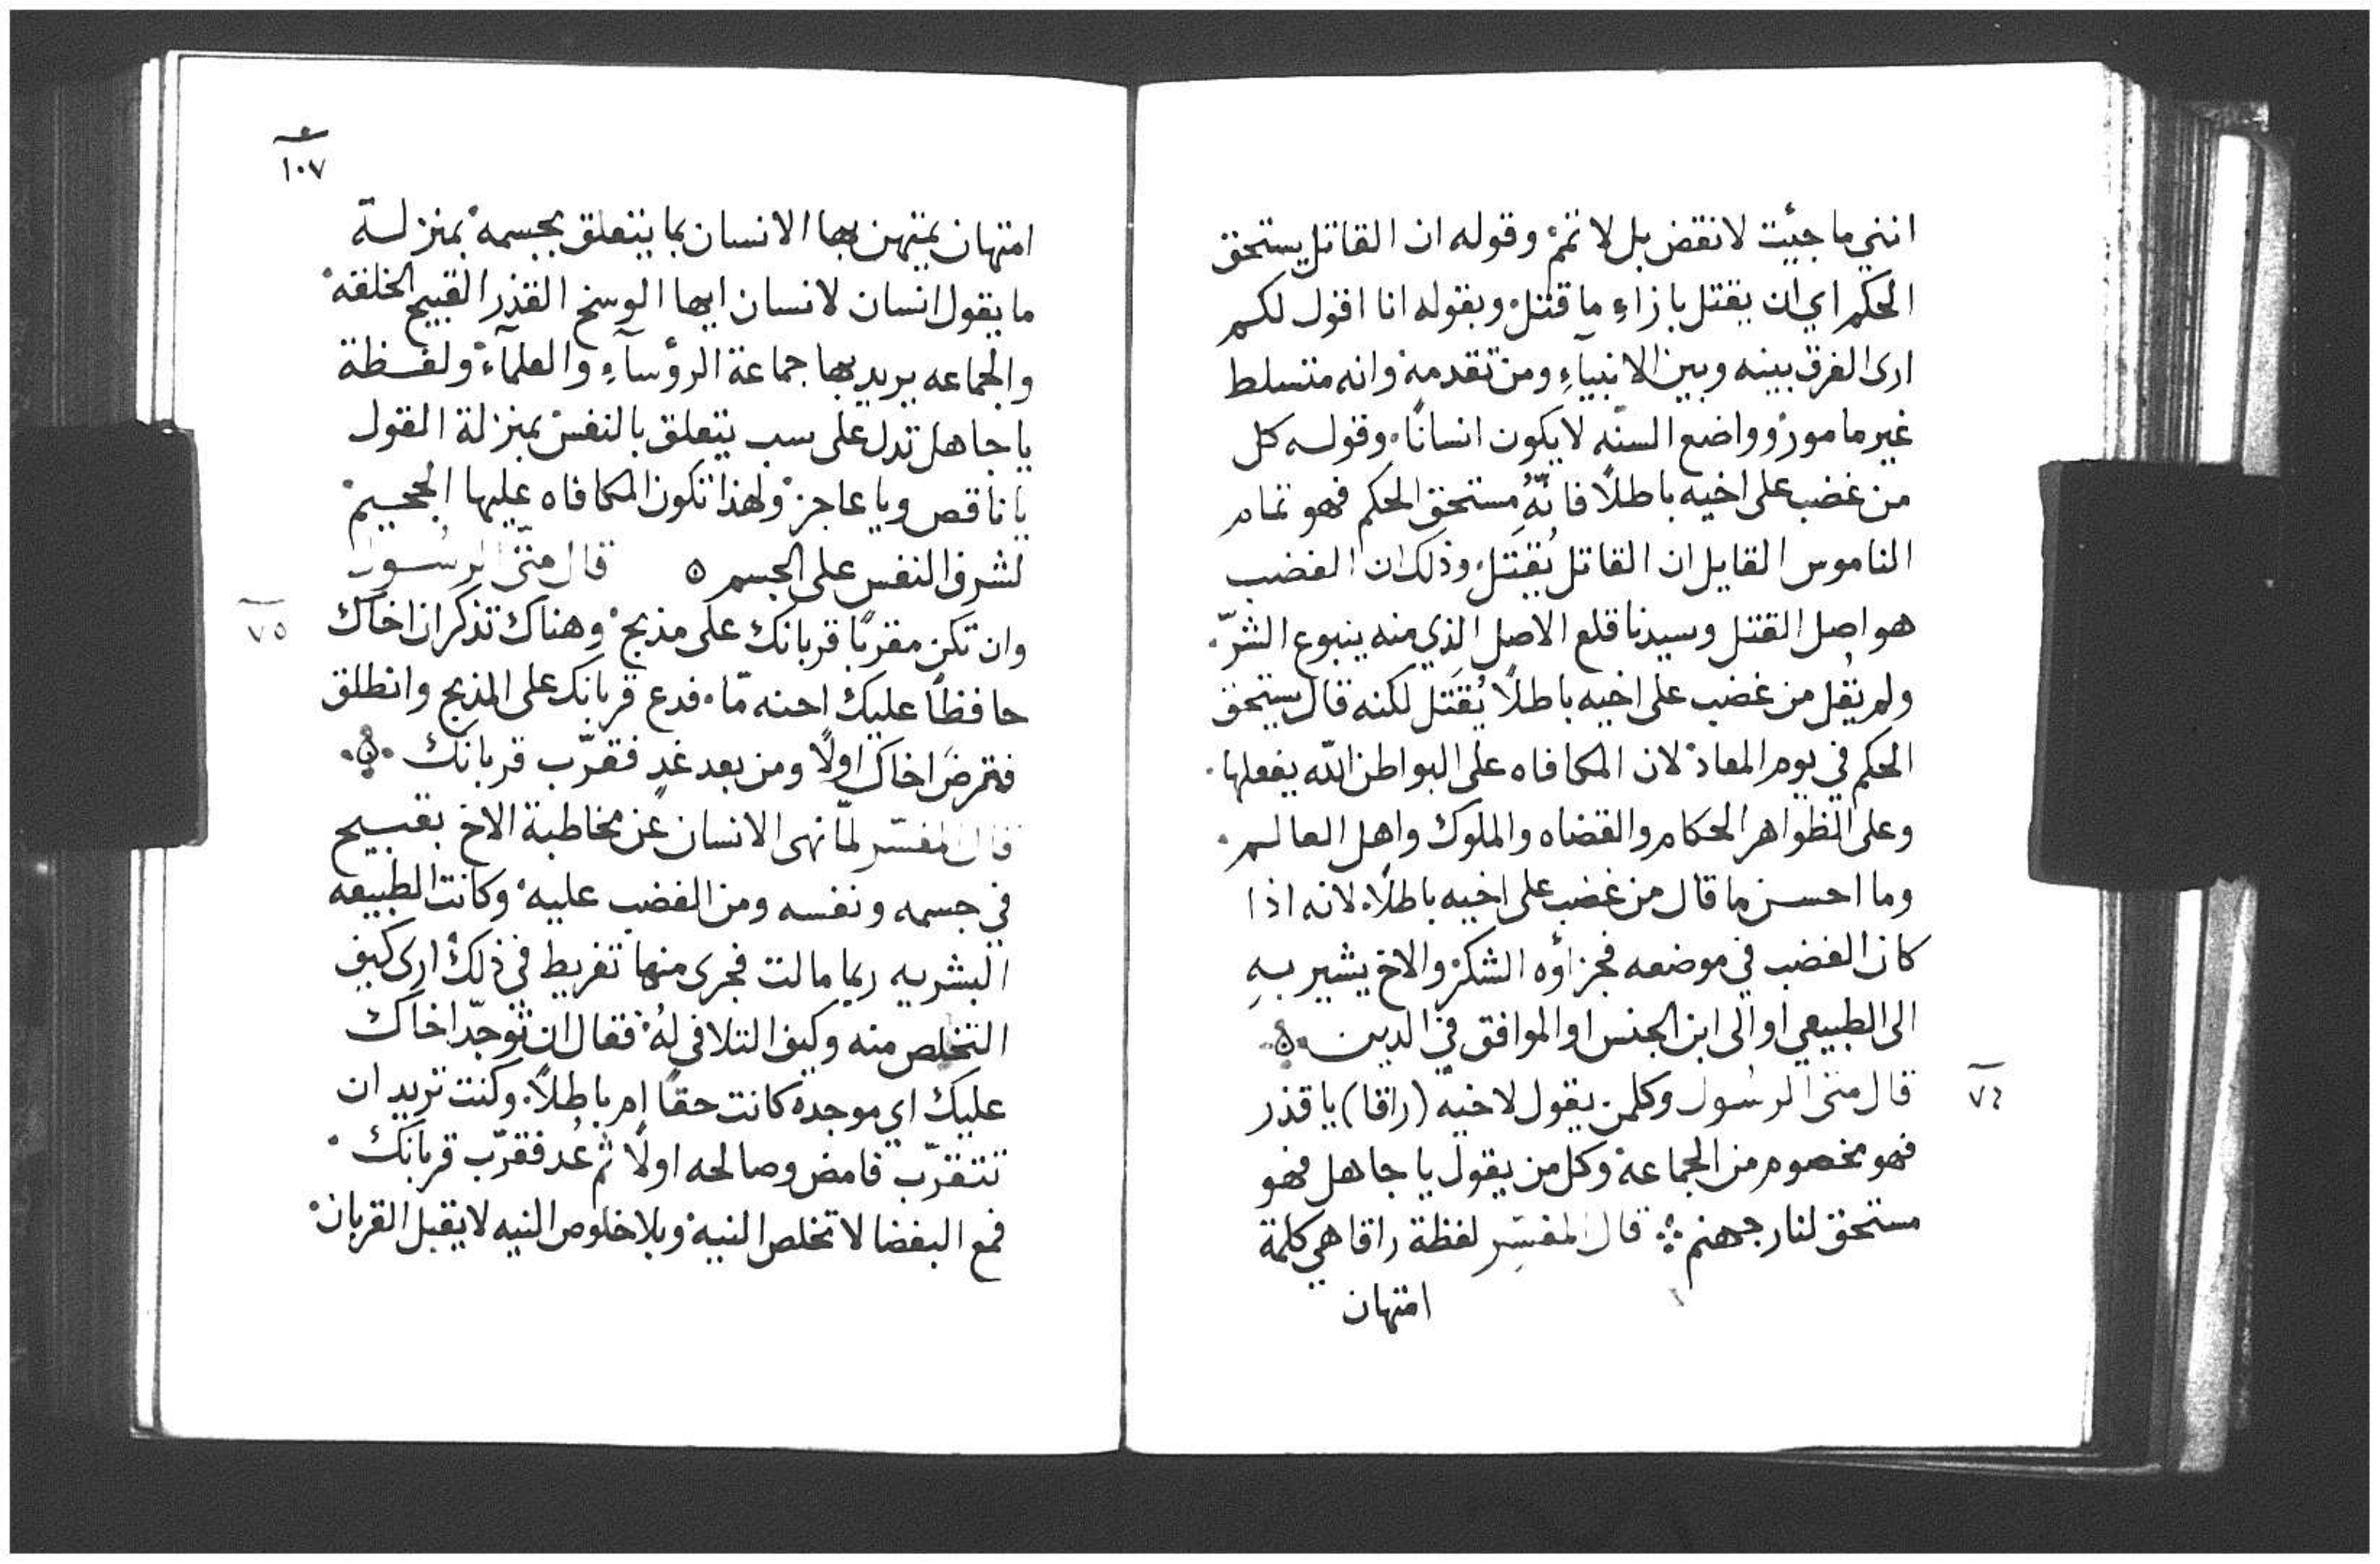 انني ما جئت لانقض بل لاتمم وقوله ان القاتل يستحق
الحكم اي ان يقتل بازاءِ ما قتل وبقوله انا اقول لكم
ارى الفرق بينه وبين الانبيآءِ ومن تقدمه وانه متسلط
غير مامور وواضع السنّه لا يكون انسانًا وقوله كل
من غضب على اخيه باطلًا فانّهُ مستحق الحكم فهو تمام
الناموس القايل ان القاتل يُقتَل وذلك ان الغضب
هو اصل القتل وسيدنا قلع الاصل الذي منه ينبوع الشرّ
ولم يقُل من غضب على اخيه باطلًا يُقتَل لكنه قال يستحق
الحكم في يوم المعاد لان المكافاه على البواطن الله يفعلها
وعلى الظواهر الحكام والقضاه والملوك واهل العالم
وما احسن ما قال من غضب على اخيه باطلًا لانه اذا
كان الغضب في موضعه فجزاؤه الشكر والاخ يشير بهِ
الى الطبيعي او الى ابن الجنس او الموافق في الدين ٥
٧٤
قال متى الرسُول وكلمن يقول لاخيه (راقا) يا قذر
فهو مخصوم من الجماعة وكل من يقول يا جاهل فهو
مستحق لنار جهنم قال المفسّر لفظة راقا هي كلمة
امتهان
١٠٧
امتهان يمتهن بها الانسان بما يتعلق بجسمه بمنزلة
ما يقول انسان لانسان ايها الوسخ القذر القبيح الخلقه
والجماعه يريد بها جماعة الرؤسآءِ والعلمآء ولفظة
يا جاهل تدل على سب يتعلق بالنفس بمنزلة القول
يا ناقص ويا عاجز ولهذا تكون المكافاه عليها الجحيم
لشرف النفس على الجسم ٥ قال متّى الرسُول
٧٥
وان تكن مقربًا قربانك على مذبح وهناك تذكر ان اخاك
حافظًا عليك احنه مّا فدع قربانك على المذبح وانطلق
فترضَ اخاك اولًا ومن بعد غدٍ فقرّب قربانك ٥
قال المفسّر لمّا نهى الانسان عن مخاطبة الاخ بقبيح
في جسمه ونفسه ومن الغضب عليه وكانت الطبيعه
البشريه ربما مالت فجرى منها تفريط في ذلك ارى كيف
التخلص منه وكيف التلافى لهُ فقال ان توجّد اخاك
عليك اي موجده كانت حقًا ام باطلًا وكنت تريد ان
تتقرّب فامض وصالحه اولًا ثم عُد فقرّب قربانك
فمع البغضا لا تخلص النية وبلا خلوص النيه لا يقبل القربان